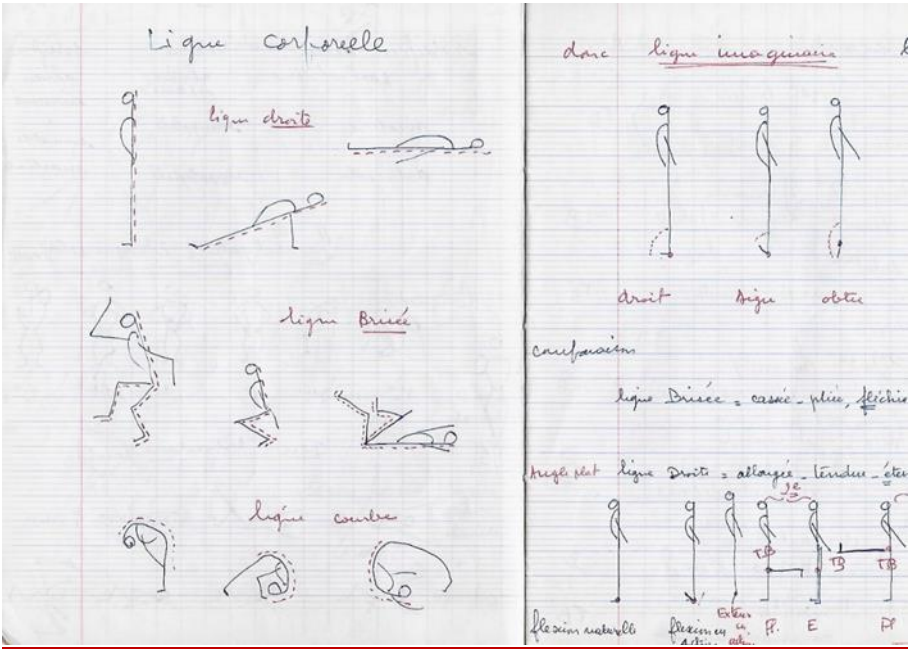 Ligne corporelle
ligne droite
ligne Brisée
ligne courbe
donc ligne imaginaire
droit Aigu obtu
comparaison
ligne Brisée = cassée - pliée, fléchie
Angle plat ligne Droite = allongée - tendue - éten
TB TB TB
flexion naturelle flexion en Exten en Fl. E Fl